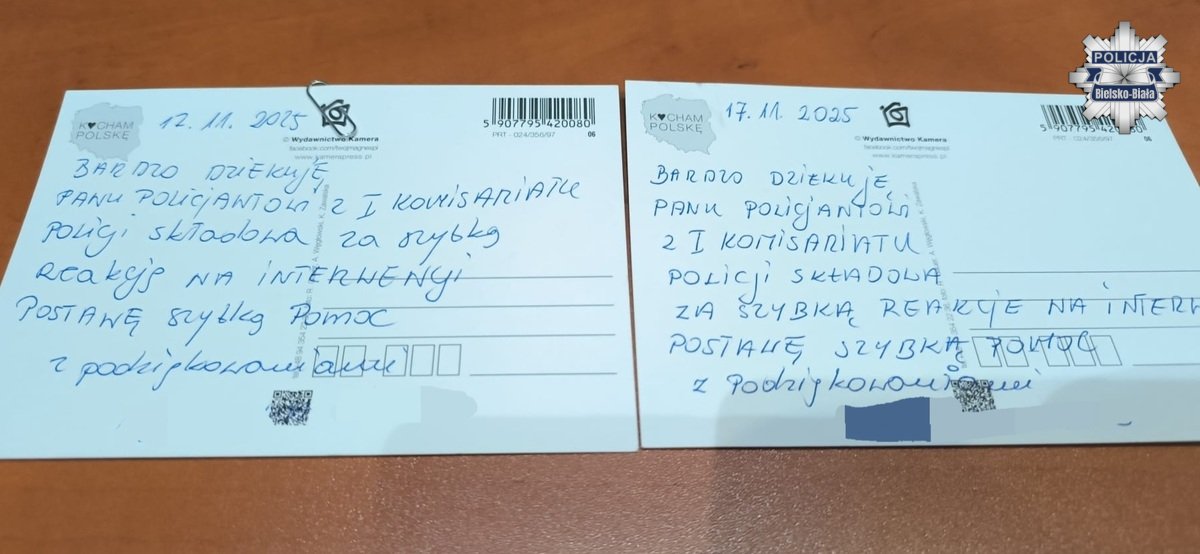 POLICJA
Bielsko-Biała
K♥CHAM
POLSKĘ
12.11.2025
© Wydawnictwo Kamera
facebook.com/twojmagnespl
www.kamerapress.pl
5 907795 420080
PRT - 024/356/97
06
BARDZO DZIEKUJĘ
PANU POLICJANTOWI z I KOMISARIATU
POLICJI SKŁADOWA za szybką
REAKCJĘ NA INTERWENCJI
POSTAWĘ szybką POMOC
z podziękowaniami
K♥CHAM
POLSKĘ
17.11.2025
© Wydawnictwo Kamera
facebook.com/twojmagnespl
www.kamerapress.pl
5 907795 420080
PRT - 024/356/97
06
BARDZO DZIEKUJĘ
PANU POLICJANTOWI
Z I KOMISARIATU
POLICJI SKŁADOWA
ZA SZYBKĄ REAKCJE NA INTERW
POSTAWĘ SZYBKĄ POMOC
z Podziękowaniami